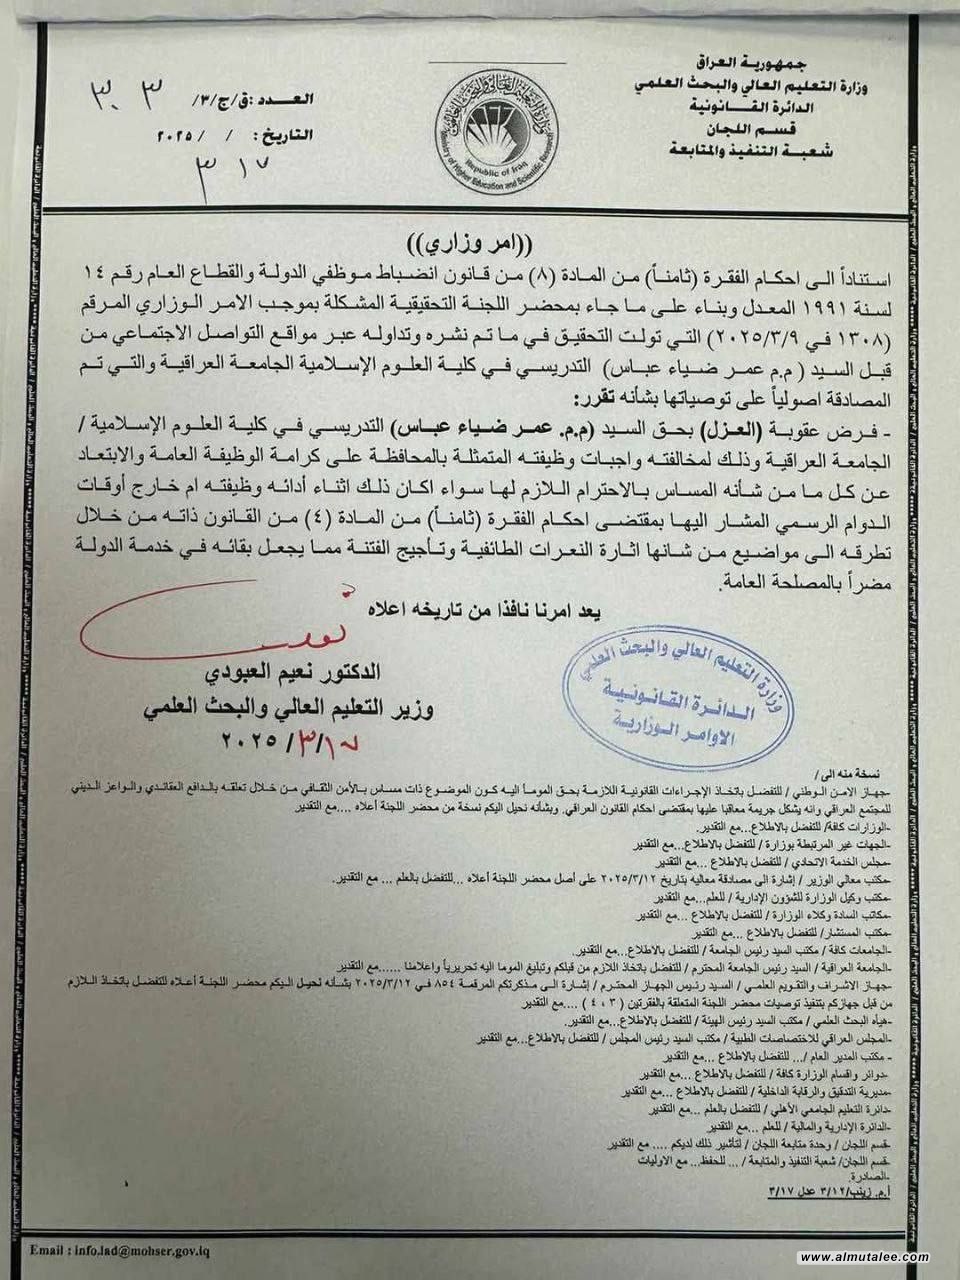 جمهورية العراق
وزارة التعليم العالي والبحث العلمي
الدائرة القــانونية
قسم اللجان
شعبة التنفيذ والمتابعة
العــدد :ق/ج/٣/
التاريخ: / / ٢٠٢٥
Republic of Iraq
Ministry of Higher Education and Scientific Research
((امر وزاري))
استناداً الى احكام الفقرة (ثامناً) من المادة (٨) من قانون انضباط موظفي الدولة والقطاع العام رقم ١٤
لسنة ١٩٩١ المعدل وبناء على ما جاء بمحضر اللجنة التحقيقية المشكلة بموجب الامر الوزاري المرقم
(١٣٠٨ في ٢٠٢٥/٣/٩) التي تولت التحقيق في ما تم نشره وتداوله عبر مواقع التواصل الاجتماعي من
قبل السيد ( م.م عمر ضياء عباس) التدريسي في كلية العلوم الإسلامية الجامعة العراقية والتي تم
المصادقة اصولياً على توصياتها بشأنه تقرر:
- فرض عقوبة (العزل) بحق السيد (م.م. عمر ضياء عباس) التدريسي في كلية العلوم الإسلامية /
الجامعة العراقية وذلك لمخالفته واجبات وظيفته المتمثلة بالمحافظة على كرامة الوظيفة العامة والابتعاد
عن كل ما من شأنه المساس بالاحترام اللازم لها سواء اكان ذلك اثناء أدائه وظيفته ام خارج أوقات
الدوام الرسمي المشار اليها بمقتضى احكام الفقرة (ثامناً) من المادة (٤) من القانون ذاته من خلال
تطرقه الى مواضيع من شانها اثارة النعرات الطائفية وتأجيج الفتنة مما يجعل بقائه في خدمة الدولة
مضراً بالمصلحة العامة.
يعد امرنا نافذا من تاريخه اعلاه
الدكتور نعيم العبودي
وزير التعليم العالي والبحث العلمي
٢٠٢٥/٣/١٧
وزارة التعليم العالي والبحث العلمي
الدائرة القانونية
الاوامر الوزارية
نسخة منه الى /
-جهاز الامن الوطني / للتفضل باتخاذ الإجراءات القانونية اللازمة بحق المومأ اليه كون الموضوع ذات مساس بالأمن الثقافي من خلال تعلقه بالدافع العقائدي والواعز الديني
للمجتمع العراقي وانه يشكل جريمة معاقبا عليها بمقتضى احكام القانون العراقي. وبشأنه نحيل اليكم نسخة من محضر اللجنة أعلاه ....مع التقدير
-الوزارات كافة/ للتفضل بالاطلاع...مع التقدير.
-الجهات غير المرتبطة بوزارة / للتفضل بالاطلاع...مع التقدير
-مجلس الخدمة الاتحادي / للتفضل بالاطلاع ...مع التقدير
-مكتب معالي الوزير / إشارة الى مصادقة معاليه بتاريخ ٢٠٢٥/٣/١٢ على أصل محضر اللجنة أعلاه ...للتفضل بالعلم ... مع التقدير.
-مكتب وكيل الوزارة للشؤون الإدارية / للعلم...مع التقدير
-مكاتب السادة وكلاء الوزارة / للتفضل بالاطلاع ...مع التقدير
-مكتب المستشار/ للتفضل بالاطلاع ...مع التقدير
-الجامعات كافة / مكتب السيد رئيس الجامعة / للتفضل بالاطلاع...مع التقدير.
-الجامعة العراقية / السيد رئيس الجامعة المحترم / للتفضل باتخاذ اللازم من قبلكم وتبليغ الموما اليه تحريرياً واعلامنا ......مع التقدير
-جهاز الاشراف والتقويم العلمي / السيد رئيس الجهاز المحترم / إشارة الى مذكرتكم المرقمة ٨٥٤ في ٢٠٢٥/٣/١٢ بشأنه نحيل اليكم محضر اللجنة أعلاه للتفضل باتخاذ اللازم
من قبل جهازكم بتنفيذ توصيات محضر اللجنة المتعلقة بالفقرتين ( ٣ ، ٤ ) ....مع التقدير
-هيأه البحث العلمي / مكتب السيد رئيس الهيئة / للتفضل بالاطلاع...مع التقدير.
-المجلس العراقي للاختصاصات الطبية / مكتب السيد رئيس المجلس / للتفضل بالاطلاع/...مع التقدير
- مكتب المدير العام /... للتفضل بالاطلاع ...مع التقدير
-دوائر واقسام الوزارة كافة / للتفضل بالاطلاع...مع التقدير
-مديرية التدقيق والرقابة الداخلية / للتفضل بالاطلاع ...مع التقدير
-دائرة التعليم الجامعي الأهلي / للتفضل بالعلم ...مع التقدير
-الدائرة الإدارية والمالية / للعلم ...مع التقدير
-قسم اللجان / وحدة متابعة اللجان / لتأشير ذلك لديكم .... مع التقدير
-قسم اللجان/ شعبة التنفيذ والمتابعة / ... للحفظ... مع الاوليات
-الصادرة.
أ.م. زينب/٣/١٢ عدل ٣/١٧
Email : info.lad@mohser.gov.iq
www.almutalee.com